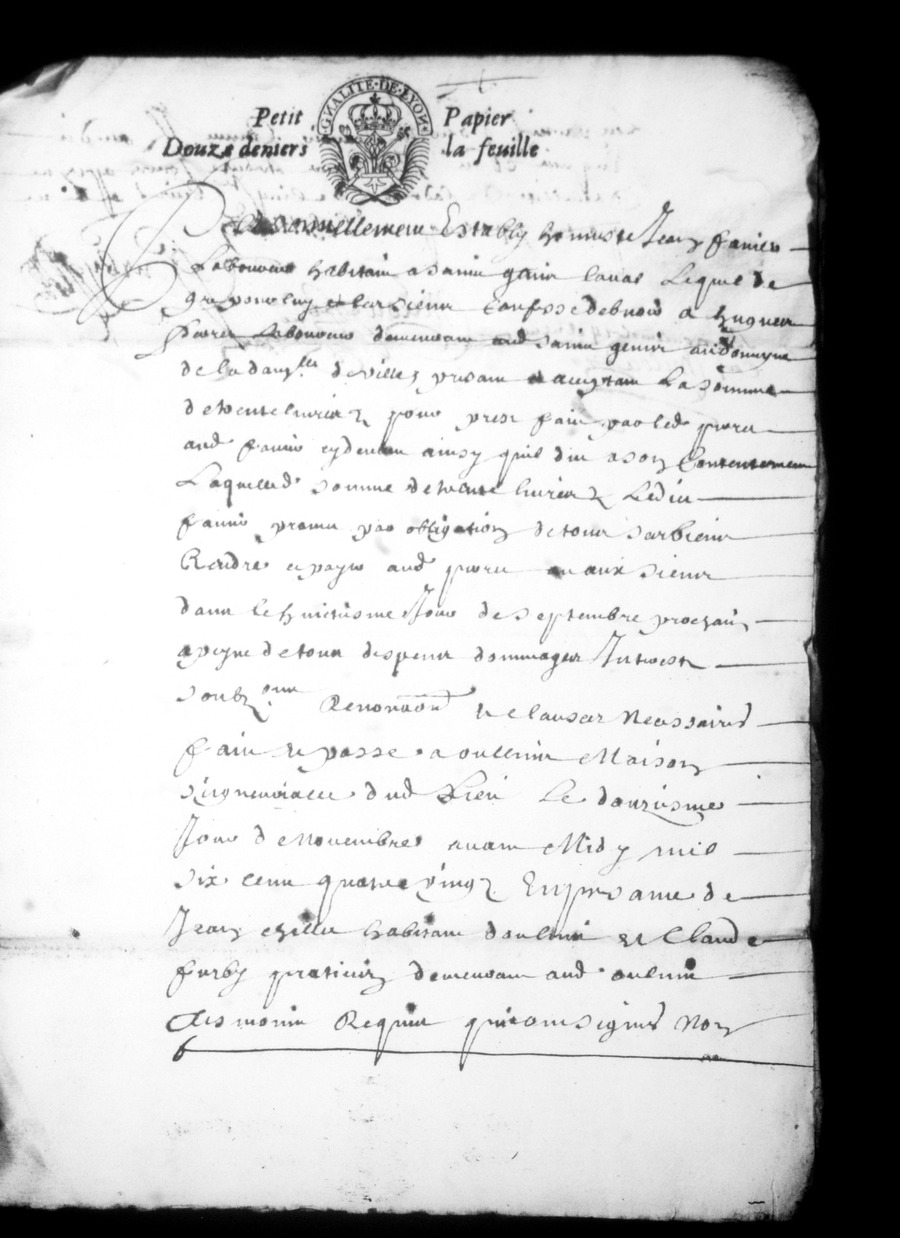 GNALITE·DE·LYON
Petit Papier
Douze deniers la feuille
Personnellement Estably honneste Jean fanier
Labooureur habitant a sainct genis laval Lequel de
gre pour luy et les siens Confesse debvoir a
Laboureur demeurant aud sainct genis
de villes presant et acceptant La somme
de trente livres pour prest faict par led
aud fanier cy devant ainsy quil dit a son Contentement
Laquelled somme de trente livres Ledit
fanier promet par obligation de tous ses biens
Rendre et payer aud ou aux siens
dans le huictiesme Jour de septembre prochain
a peyne de tous despens dommages Interests
soubz Renon on et clauses Necessaires
faict et passe a oullins Maison
seigneurialle dud Lieu Le douziesme
Jour de Novembre avant Midy mil
six cent quatre vingtz En presance de
Jean habitant doullins et Claude
furby praticien demeurant aud oullins
tesmoins Requis qui ont signes Non